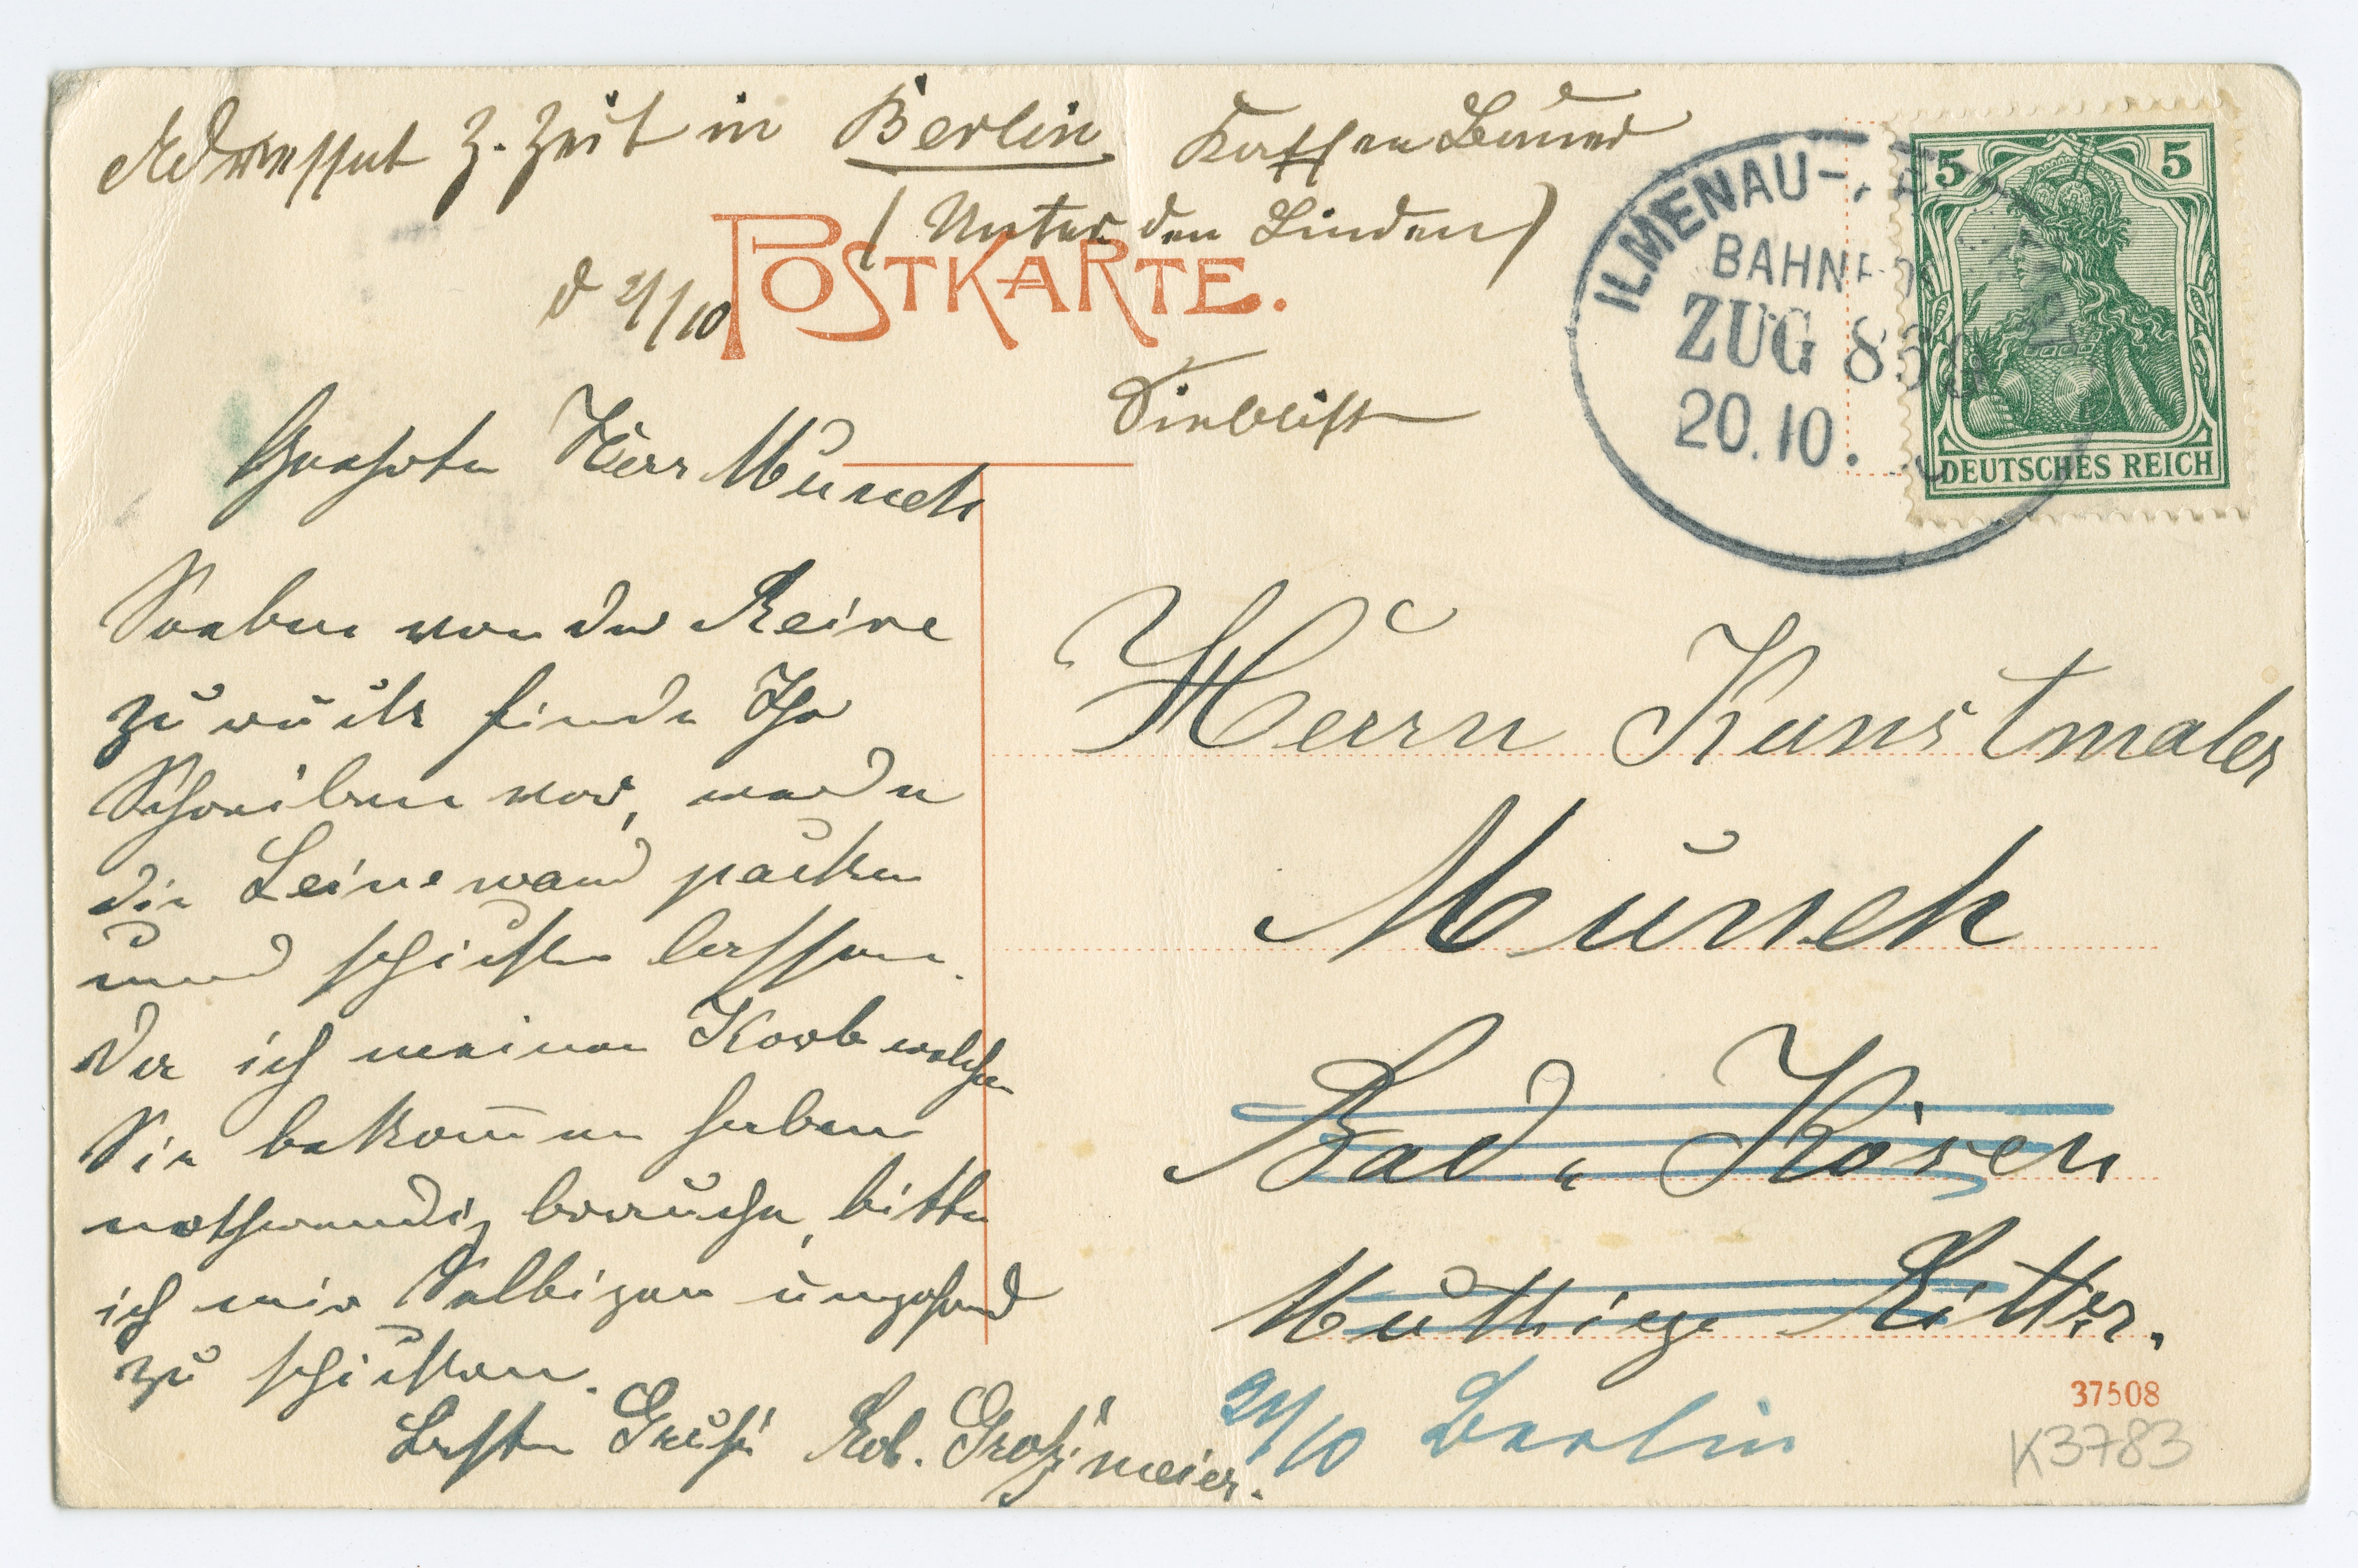 Adressat z. Zeit in Berlin Kaffee Bauer
(Unter den Linden)
d 21/10
POSTKARTE.
ILMENAU-
BAHNP
ZUG 8
20.10.
5 5
DEUTSCHES REICH
Geehrter Herr Munch
Soeben von der Reise
zurück finde Ihr
Schreiben vor, werde
die Leinewand packen
und schicken lassen.
Da ich meinen Korb welchen
Sie bekommen haben
nothwendig brauche, bitte
ich mir Selbigen umgehend
zu schicken.
Besten Gruß Rob. Großmeier.
Herrn Kunstmaler
Munch
Bad Kösen
Muthiger Ritter.
21/10 Berlin
37508
K3783